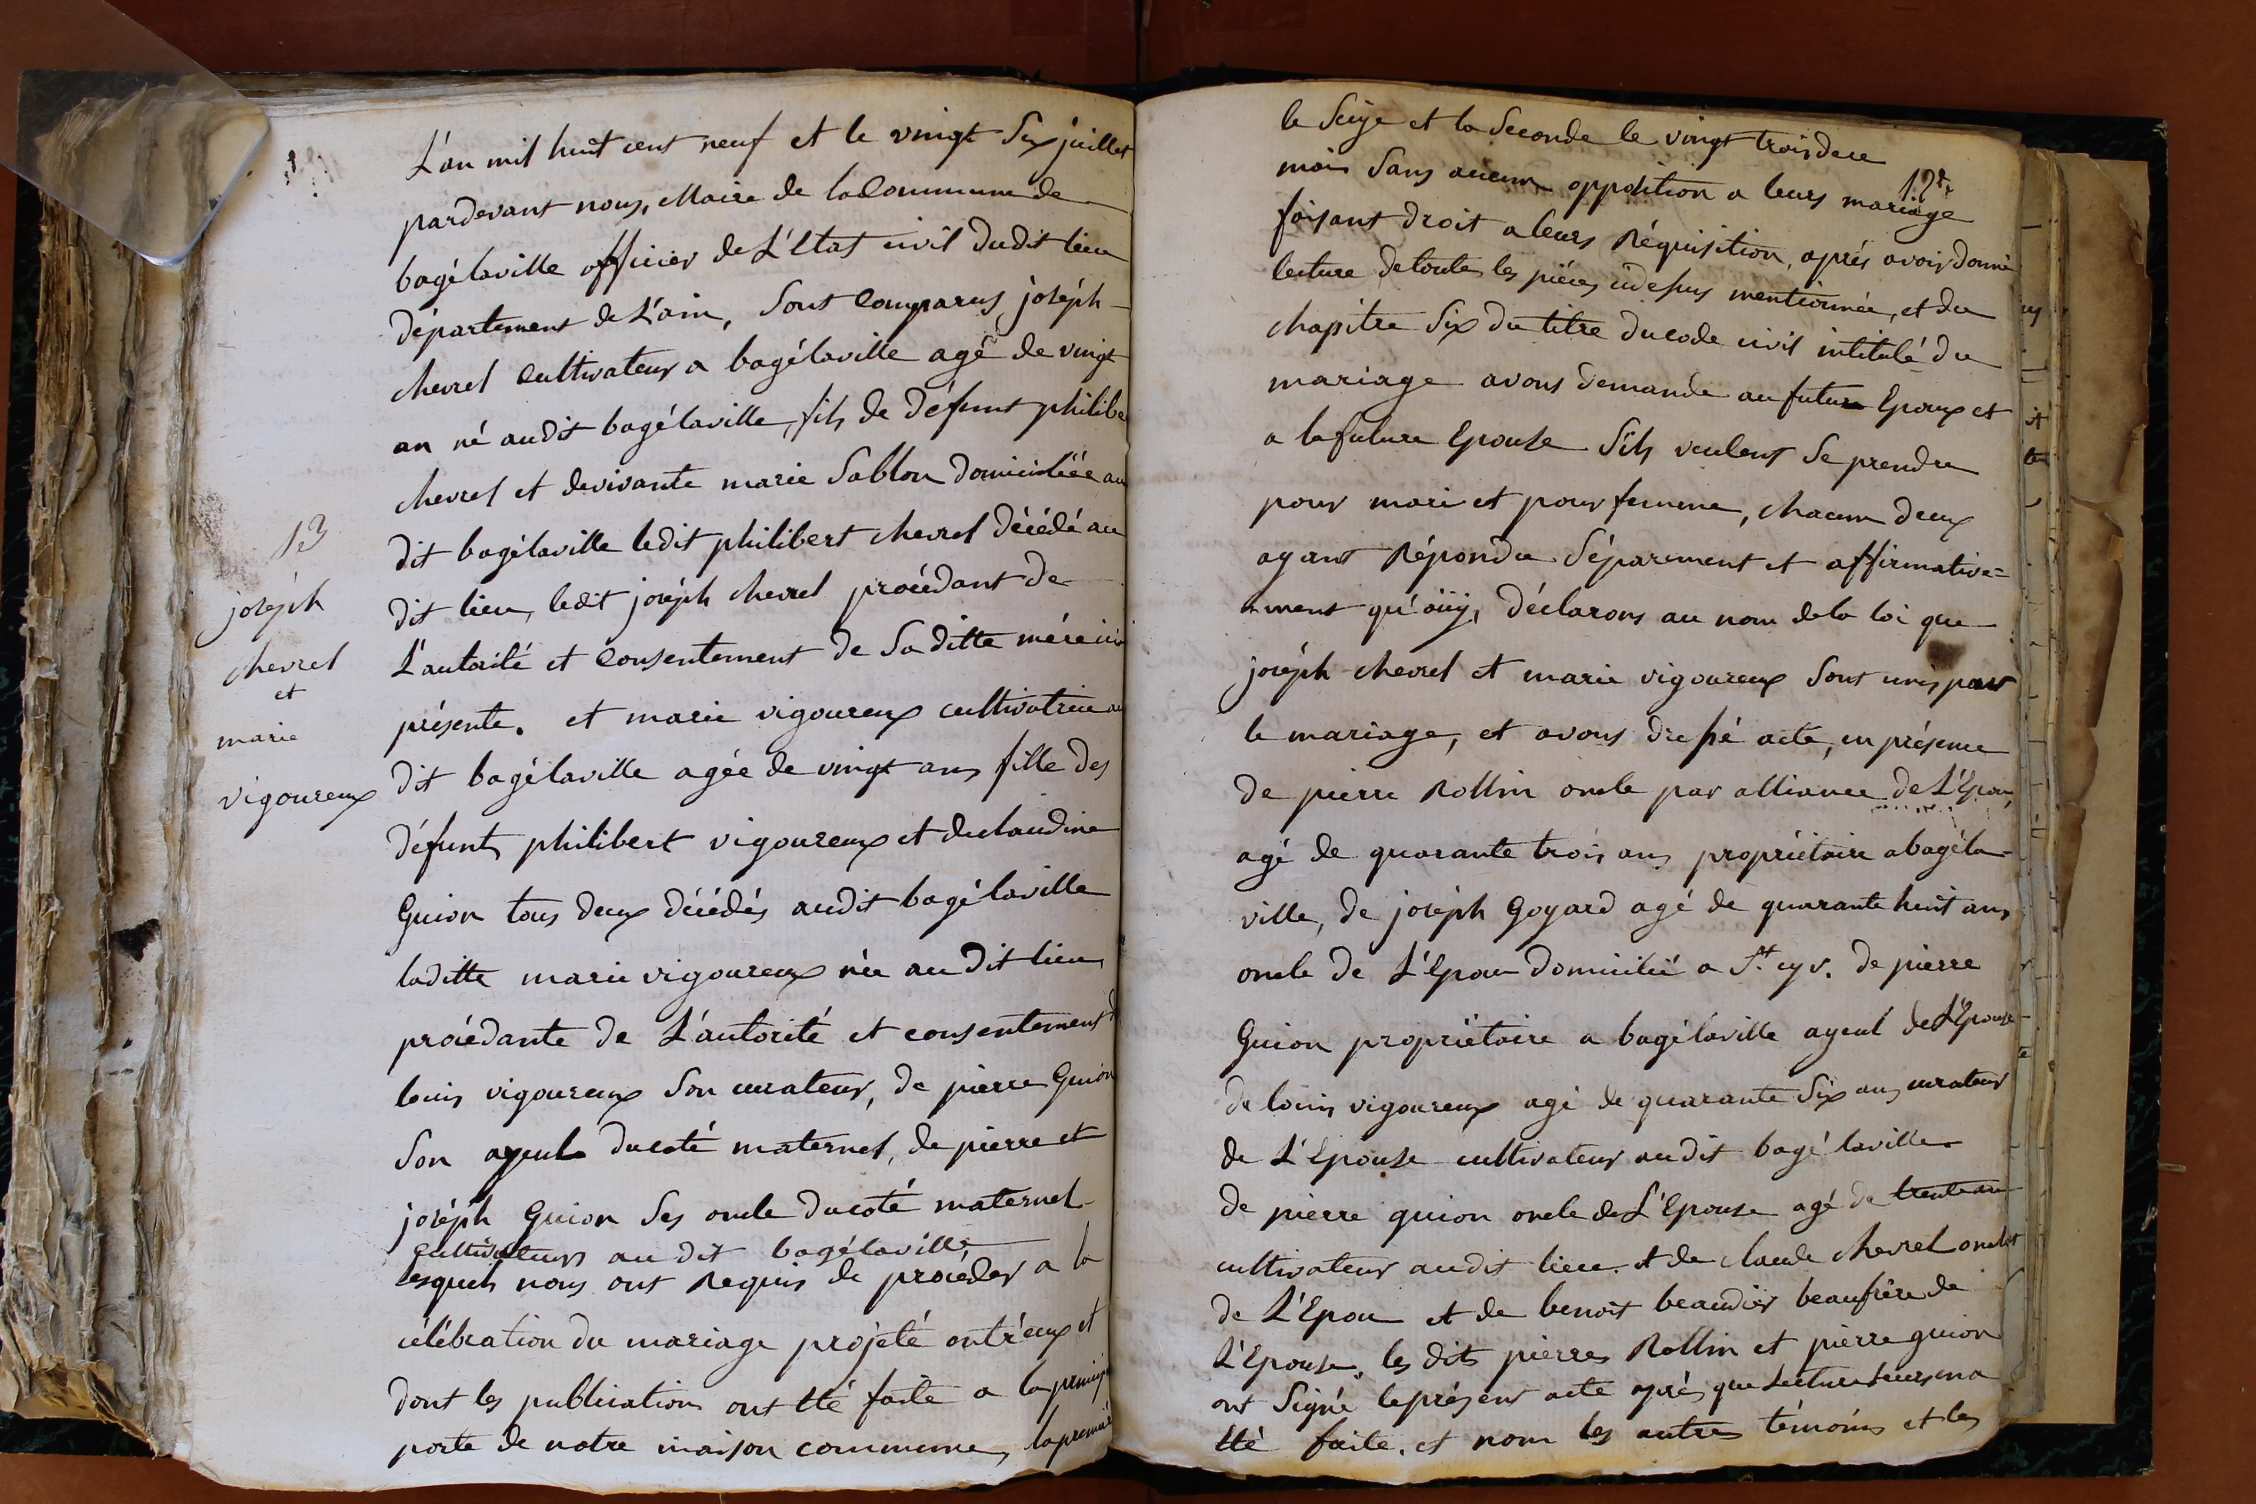 L'an mil huit cent neuf et le vingt Six juillet
pardevant nous, Maire de la Commune de
bagélaville officier de L'Etat civil dudit lieu
département de L'ain, Sont Comparus, joséph
chevrel Cultivateur a bagélaville agé de vingt
an né audit bagélaville, fils de défunt philibe
chevrel et devivante marie Sablon domiciliéé au
dit bagélaville ledit philibert chevrel décédé au
dit lieu, ledit joséph chevrel procédant de
L'autorité et Consentement de Saditte mére ici
présente. et marie vigoureux cultivatrice au
dit bagélaville agée de vingt ans fille des
défunts philibert vigoureux et declaudine
Guion tous deux décédés audit bagélaville
laditte marie vigoureux née audit lieu
procédante de L'autorité et consentement d
louis vigoureux Son curateur, de pierre Guion
Son ayeul ducoté maternel, de pierre et
joséph Guion Ses oncle ducoté maternel
Cultivateurs au dit bagélaville
lesquels nous ont Requis de procéder a la
célébration du mariage projeté entr'eux et
dont les publications ont été faite a la principa
porte de notre maison commune, la premié
13
joséph
chevrel
et
marie
vigoureux
le Seize et la Seconde le vingt trois de ce
mois Sans aucune oppolition a leurs mariage
12
faisant droit a leurs Réquisition, aprés avoir donné
lecture detoutes les piéces cidessus mentionnée, et du
chapitre Six du titre ducode civil intitulé du
mariage avons demande au futur Epoux et
a la future Epouse S'ils veulent Se prendre
pour mari et pour femme, chacun deux
ayant Répondu Séparement et affirmative=
=ment qu'oüy, déclarons au nom de la loi que
joséph chevrel et marie vigoureux Sont unis par
le mariage, et avons dressé acte, en présence
de pierre Rollin oncle par alliance de L'Epoux,
agé de quarante trois ans propriétaire abagéla-
ville, de joséph Goyard agé de quarante huit ans
oncle de L'Epou domicilié a St. cyr. de pierre
Guion propriétaire a bagélaville ayeul de L'Epouse
de louis vigoureux agé de quarante Six ans curateur
de L'Epouse cultivateur audit bagélaville
de pierre guion oncle de L'Epouse agé de trente an
cultivateur audit lieu et de claude chevrel oncle
de L'Epou et de benoit beaudier beaufrére de
L'Epouse, les dits pierres Rollin et pierre guion
ont Signé leprésent acte aprés que Lecture Leurs en a
été faite. et nom les autres témoins et les